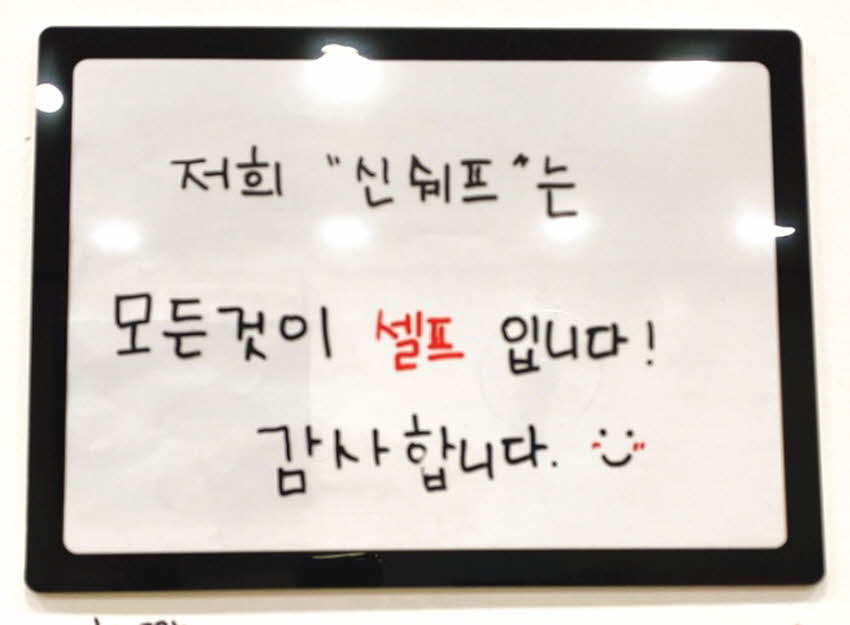 저희 "신쉐프"는
모든것이 셀프 입니다!
감사합니다.